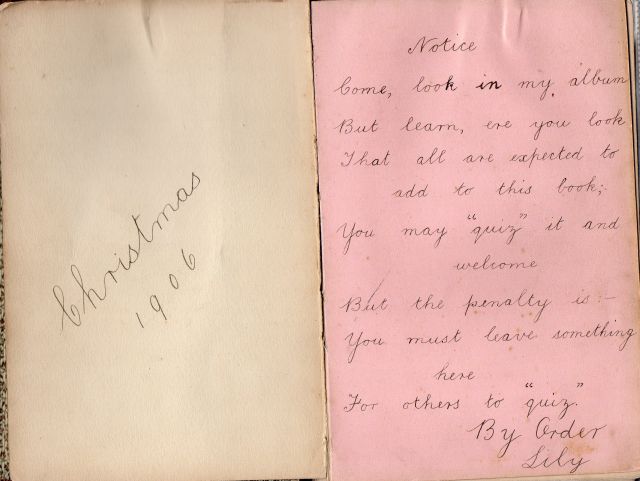 Christmas
1906
Notice
Come, look in my album
But learn, ere you look
That all are expected to
add to this book;
You may "quiz" it and
welcome
But the penalty is :-
You must leave something
here
For others to "quiz".
By Order
Lily